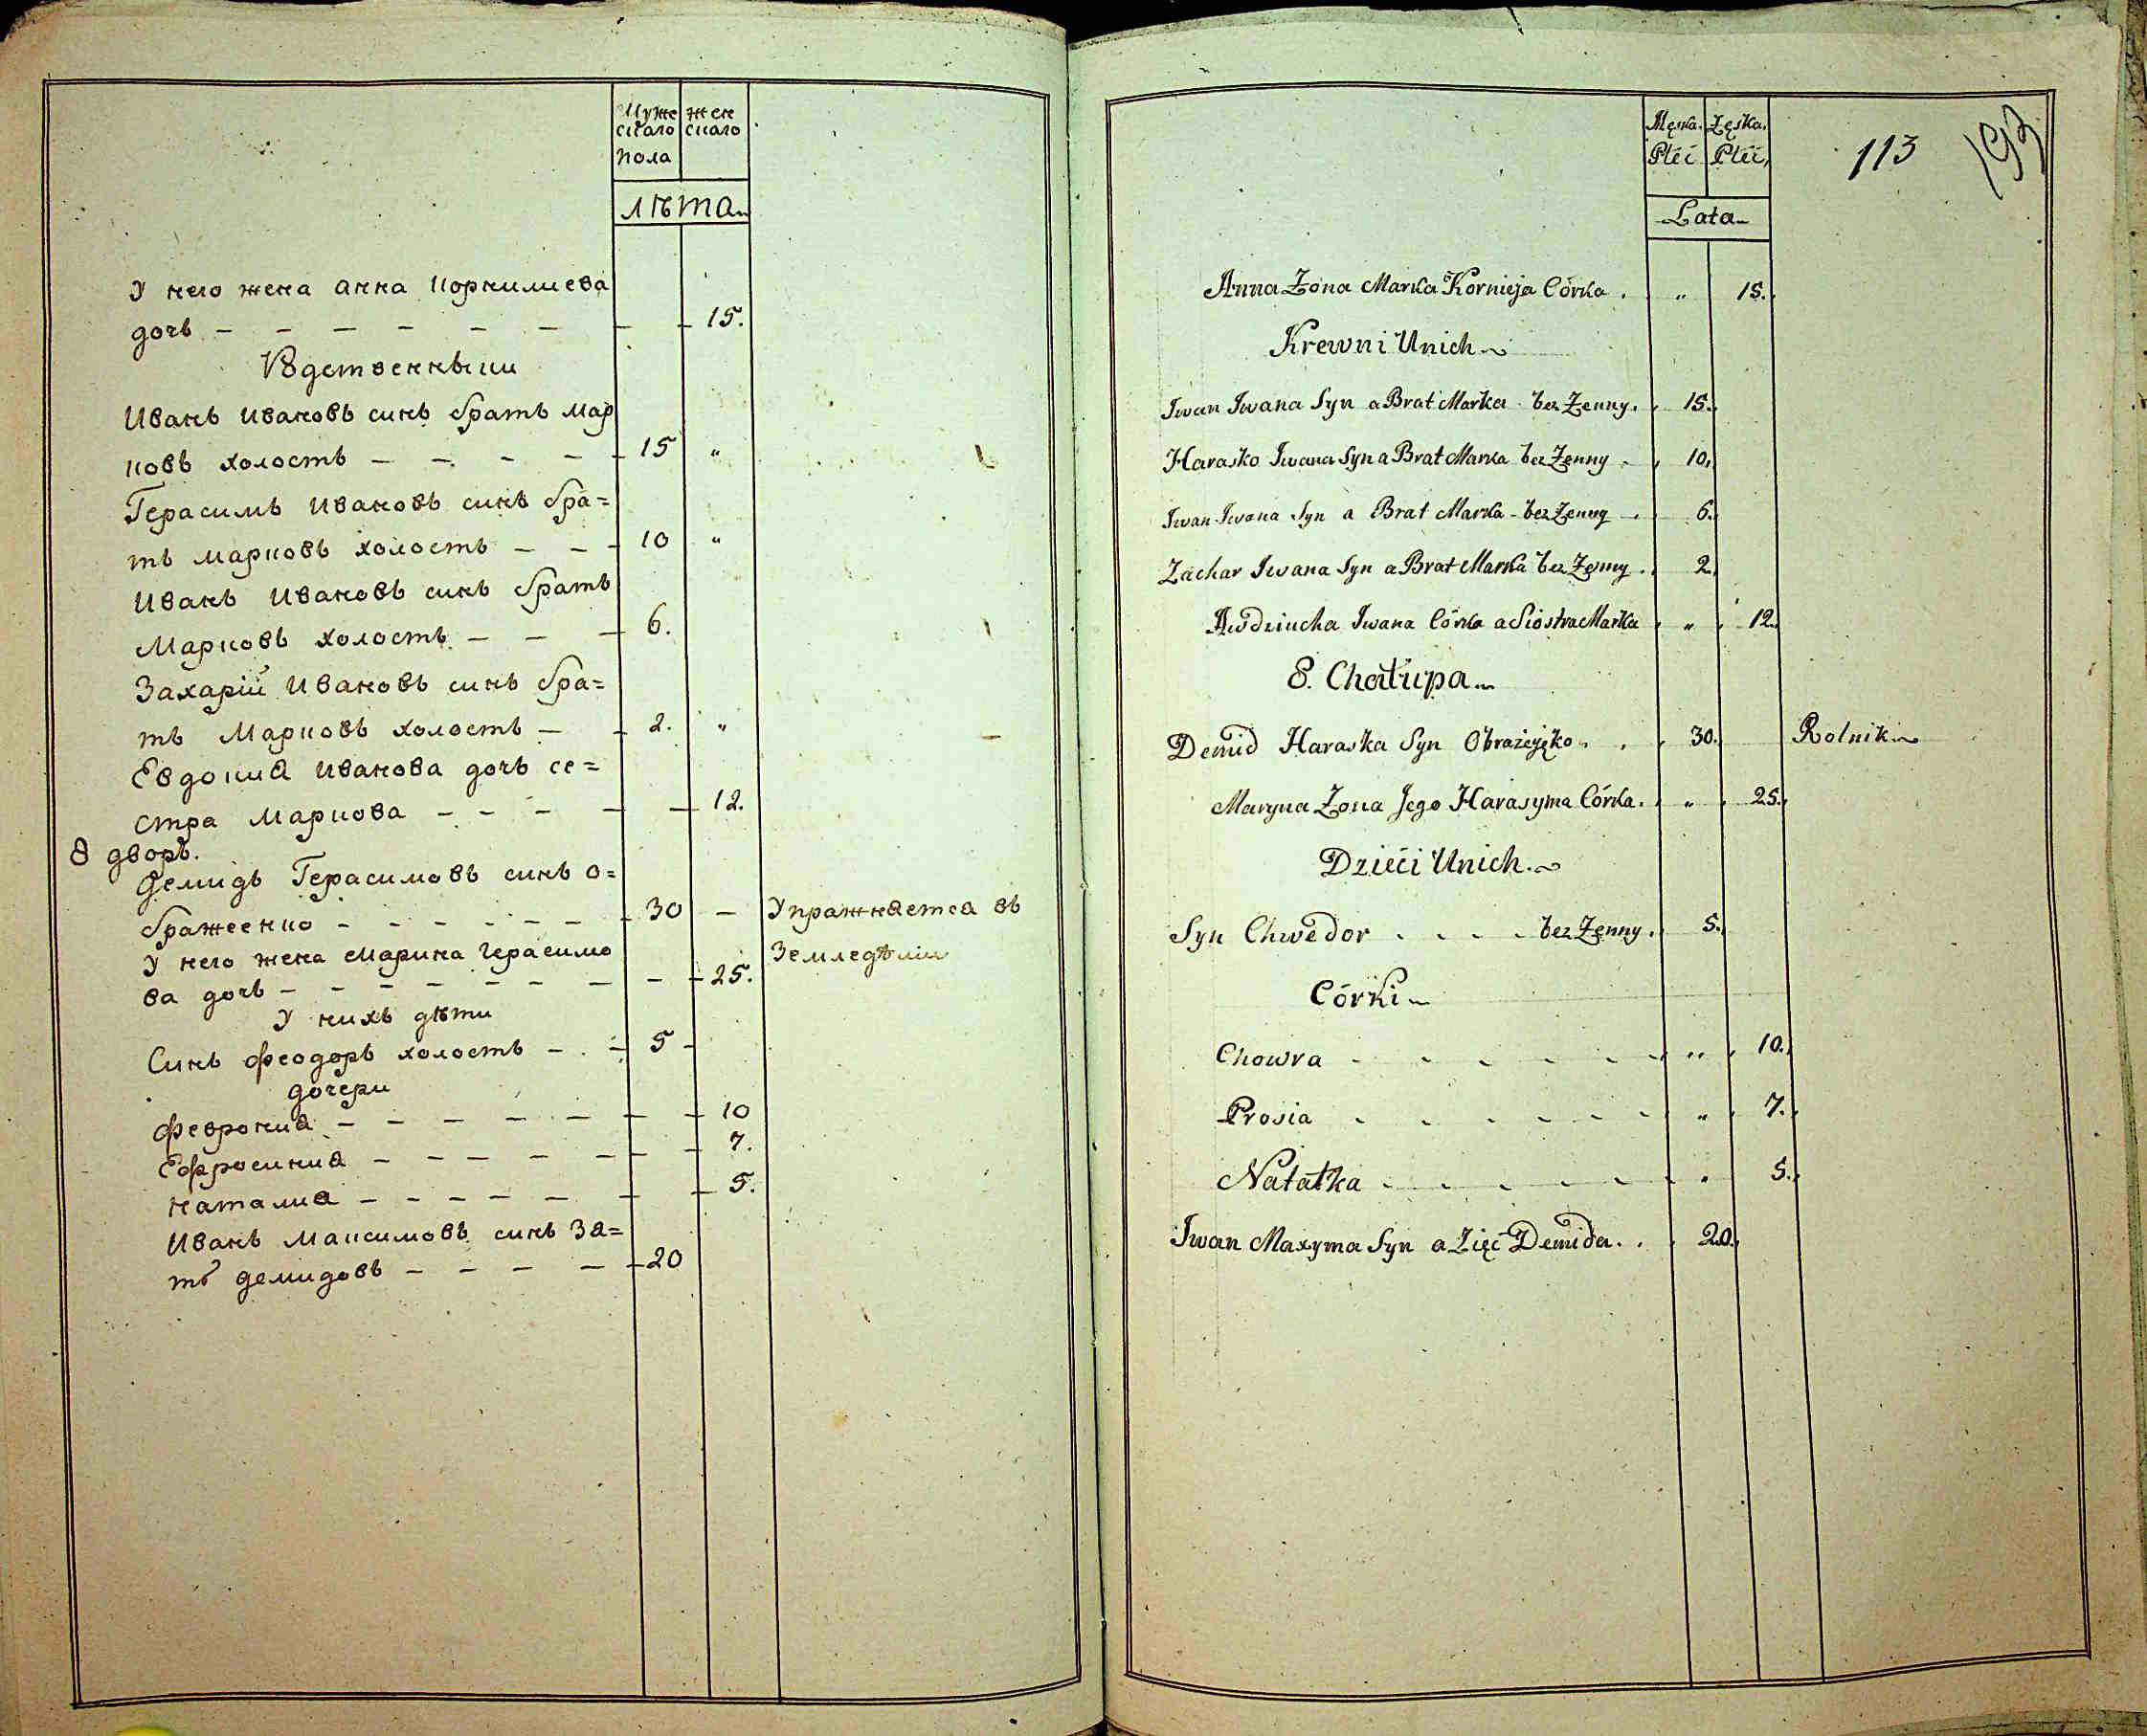 Муже
скаго
пола
жен
скаго
лѣта
У него жена анна корнилиева
дочь — — — — — — — — 15.
Иванъ Ивановъ синъ братъ мар
ковъ холостъ — — — — 15 "
Герасимъ Ивановъ синъ бра=
тъ марковъ холостъ — — — 10 "
Иванъ Ивановъ синъ братъ
Марковъ холостъ — — — 6.
Захарій Ивановъ синъ бра=
тъ Марковъ холостъ — — 2. "
Евдокия Иванова дочь се=
стра Маркова — — — — — 12.
8 дворъ.
Демидъ Герасимовъ синъ о=
бражеенко — — — — — — — 30 — Упражняетса въ
Земледѣліи
У него жена Марина герасимо
ва дочь — — — — — — — — — 25.
У нихъ дѣти
Синъ феодоръ холостъ — . — 5 —
дочери
феврония — — — — — — — 10
Ефросиния — — — — — — — 7.
наталия — — — — — — — 5.
Иванъ Максимовъ синъ зя=
ть демидовъ — — — — — 20
Męska.
Płéć
Żęska.
Płéć,
113
193
Lata
Anna Żona Marka Kornieja Córka . " 15.
Krewni Unich
Jwan Jwana Syn a Brat Marka bez Żenny. 15.
Harasko Jwana Syn a Brat Marka bez Żenny 10.
Jwan Jwana Syn a Brat Marka bez Żenny 6.
Zachar Jwana Syn a Brat Marka bez Żenny . 2.
Awdziucha Jwana Córka a Siostra Marka " 12.
8. Chałupa
Demid Haraska Syn Obrażeyko . . . 30. Rolnik
Maryna Żona Jego Harasyma Córka . " 25.
Dzieci Unich.
Syn Chwedor . . . . bez Żenny . 5.
Córki
Chowra - - - - - - " 10.
Prosia - - - - - - " 7.
Natałka - - - - - - " 5.
Jwan Maxyma Syn a Zięć Demida . . 20.